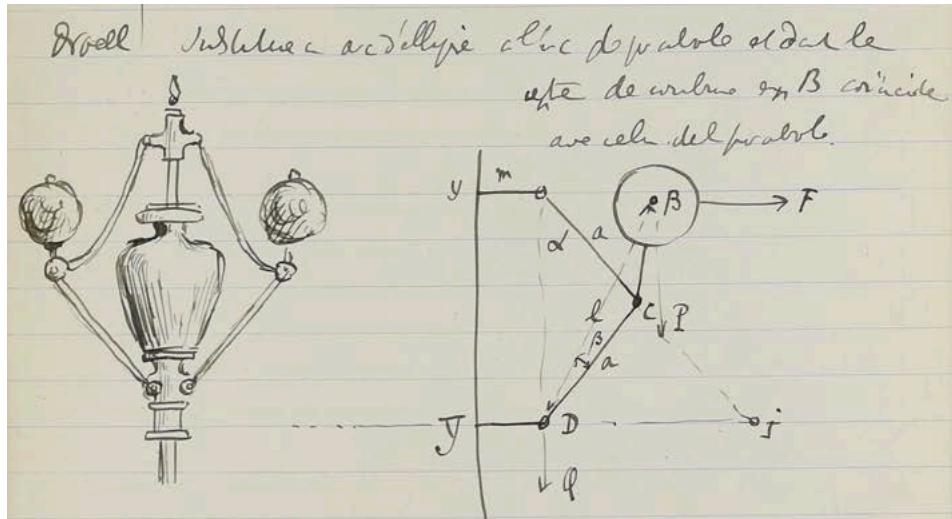 Proell substitue a arc d'ellipse l'arc de parabole et dont le
centre de courbure en B coïncide
avec celui de la parabole.
m
y
B
F
α
a
C
l
P
β
a
y
D
j
Q